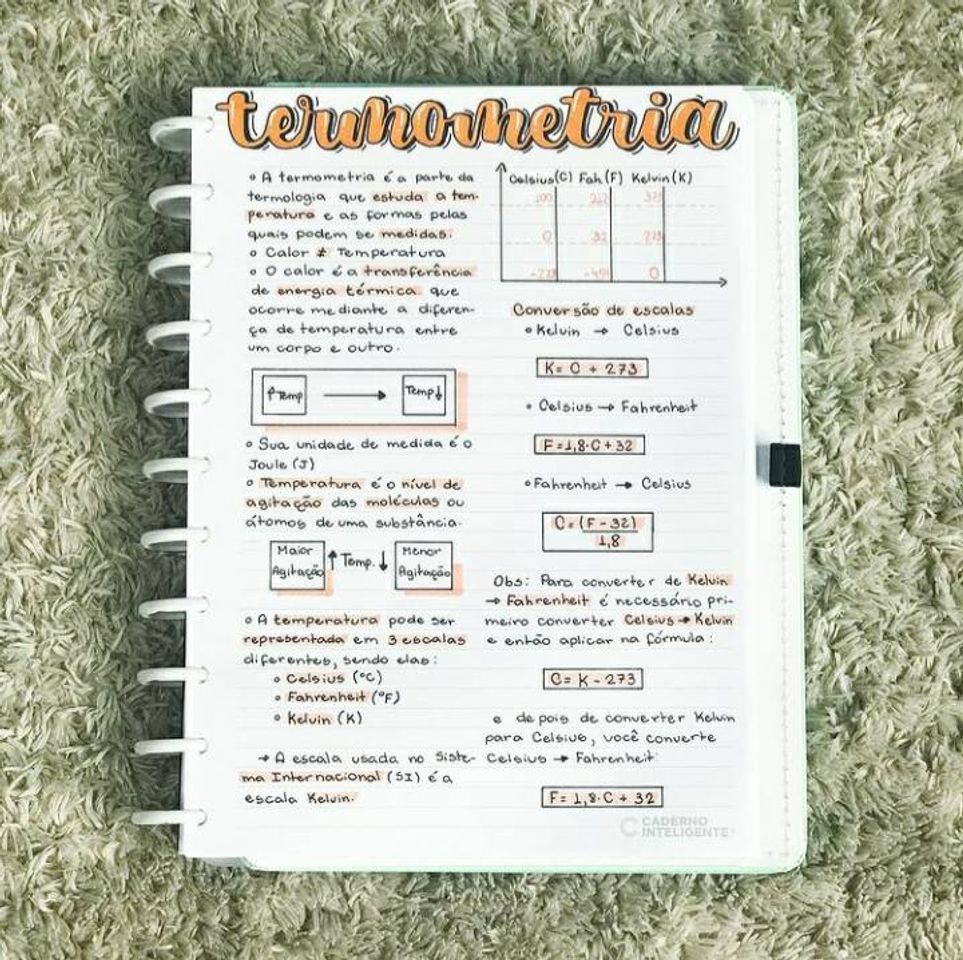 termometria
° A termometria é a parte da
termologia que estuda a tem-
peratura e as formas pelas
quais podem se medidas.
° Calor ≠ Temperatura
° O calor é a transferência
de energia térmica que
ocorre mediante a diferen-
ça de temperatura entre
um corpo e outro.
↑Temp → Temp↓
° Sua unidade de medida é o
Joule (J)
° Temperatura é o nível de
agitação das moléculas ou
átomos de uma substância.
Maior Agitação ↑ Temp. ↓ Menor Agitação
° A temperatura pode ser
representada em 3 escalas
diferentes, sendo elas:
° Celsius (°C)
° Fahrenheit (°F)
° Kelvin (K)
→ A escala usada no Siste-
ma Internacional (SI) é a
escala Kelvin.
Celsius (C) Fah (F) Kelvin (K)
100 212 373
0 32 273
-273 -459 0
Conversão de escalas
° Kelvin → Celsius
K= C + 273
° Celsius → Fahrenheit
F=1,8·C+32
° Fahrenheit → Celsius
C = (F - 32)
1,8
Obs: Para converter de Kelvin
→ Fahrenheit é necessário pri-
meiro converter Celsius → Kelvin
e então aplicar na fórmula:
C= K - 273
e depois de converter Kelvin
para Celsius, você converte
Celsius → Fahrenheit
F= 1,8·C + 32
CADERNO
INTELIGENTE